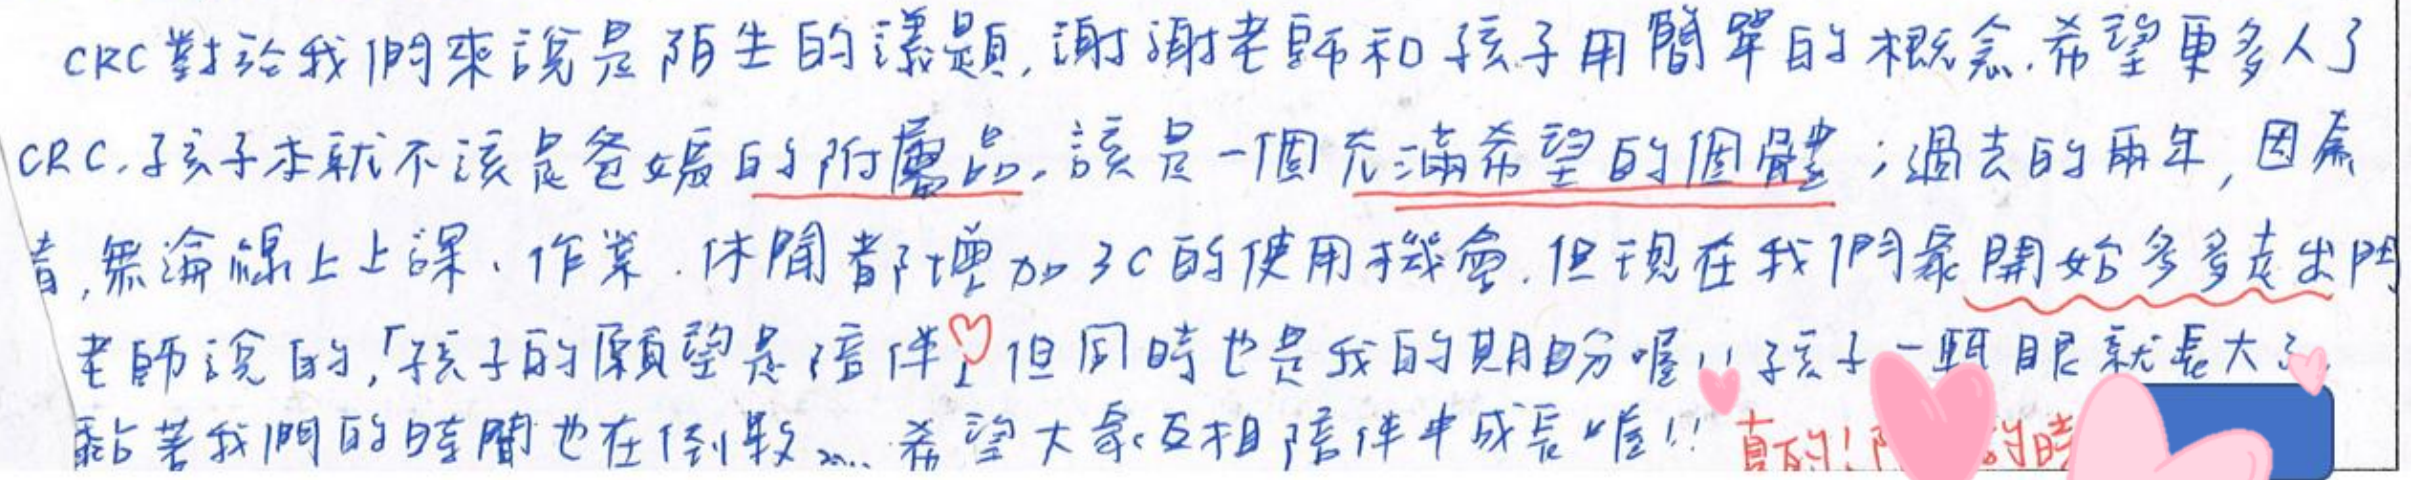 CRC對於我們來說是陌生的議題,謝謝老師和孩子用簡單的概念.希望更多人了
CRC.孩子本就不該是爸媽的附屬品.該是一個充滿希望的個體;過去的兩年,因為
,無論線上上課、作業.休閒都增加3C的使用機會.但現在我們家開始多多走出門
老師說的,「孩子的願望是陪伴」♡但同時也是我的期盼喔!!孩子一眨眼就長大了
黏著我們的時間也在倒數....希望大家在互相陪伴中成長喔!!真的!